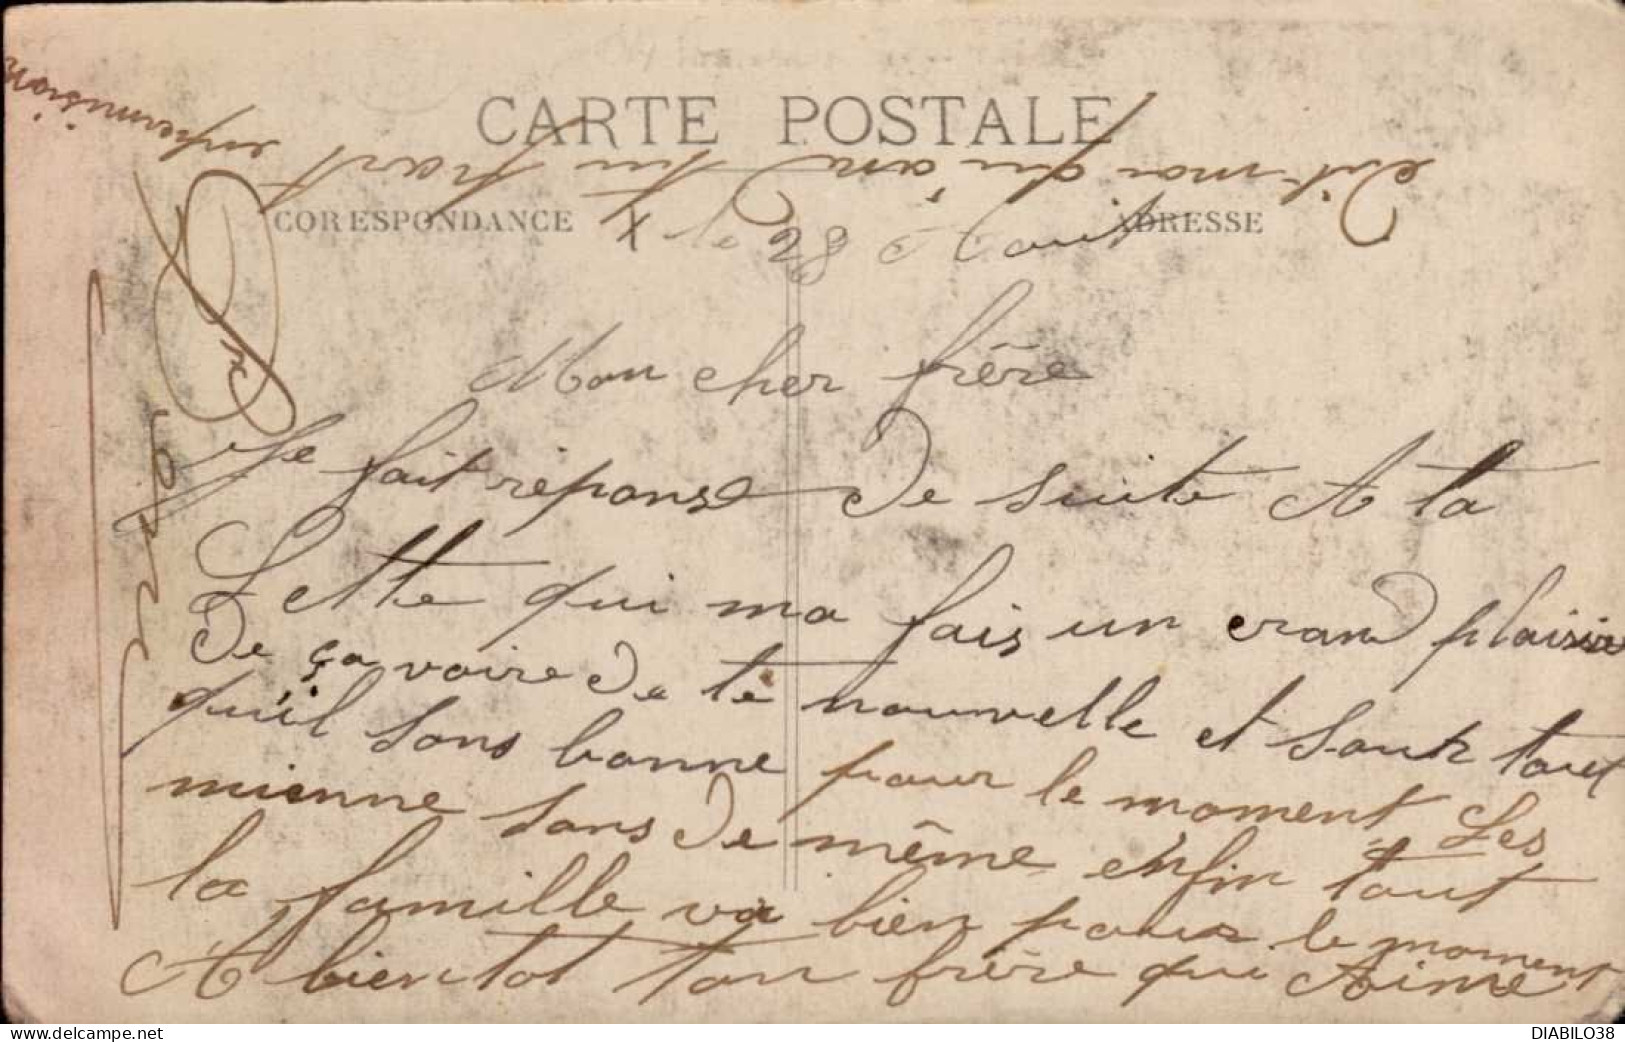 CARTE POSTALE
CORESPONDANCE
ADRESSE
le 28 Aout
Mon cher frère
Je fait réponse De suite A ta
Lettre qui ma fais un grand plaisire
De ça voire De té nouvelle et Sourtout
qu'il sons bonne pour le moment Les
mienne sons De même enfin tout
la famille va bien pour le moment
A bientot ton frère qui Aime
Dit moi qu an tu part
enpermision
DIABILO38